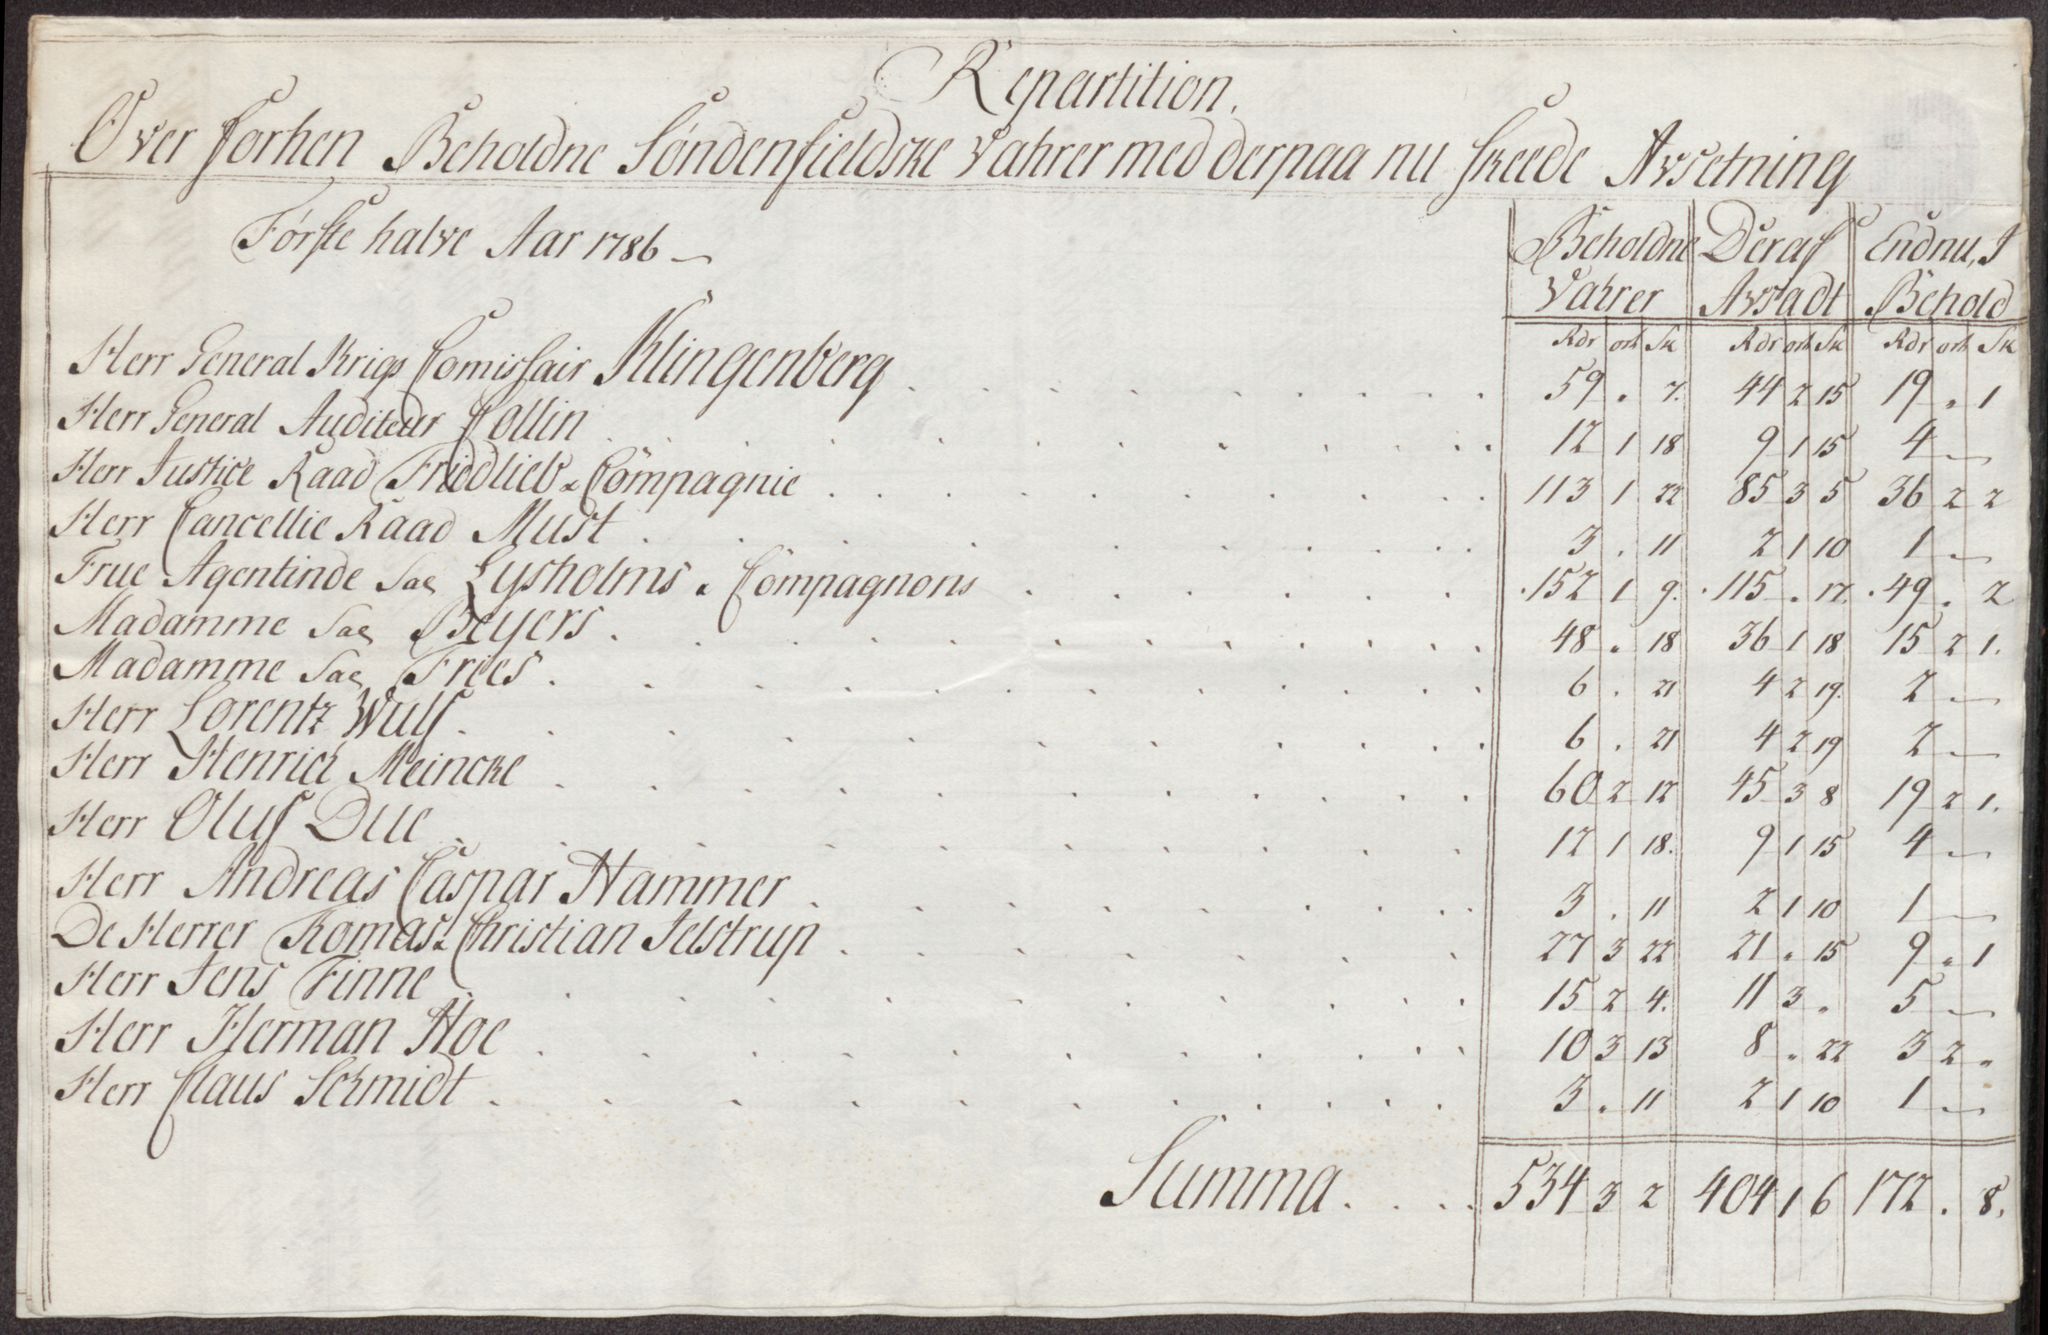 Repartition.
Over forhen Beholdne Søndenfieldske Vahrer med derpaa nu skeede Avsetning
Første halve Aar 1786
Beholdne Vahrer | Deraf Avsadt | Endnu, I Behold
Rdr ort Sk | Rdr ort Sk | Rdr ort Sk
Herr General Krigs Comissair Klingenberg . . . 59 . 7. | 44 2 15 | 19 . 1
Herr General Auditeur Collin . . . 12 1 18 | 9 1 15 | 4 —
Herr Justice Raad Friedlieb & Compagnie . . . 113 1 22 | 85 3 5 | 36 2 2
Herr Cancellie Raad Must . . . 3 . 11 | 2 1 10 | 1 —
Frue Agentinde Sal Lysholms & Compagnons . . . 152 1 9. | 115 . 17. | 49 . 2
Madamme Sal Beyers . . . 48 . 18 | 36 1 18 | 15 2 1.
Madamme Sal Fries . . . 6 . 21 | 4 2 19. | 2 —
Herr Lorentz Wulf . . . 6 . 21 | 4 2 19 | 2 —
Herr Henrich Meincke . . . 60 2 12 | 45 3 8 | 19 2 1.
Herr Oluf Due . . . 12 1 18. | 9 1 15 | 4 —
Herr Andreas Caspar Hammer . . . 3 . 11 | 2 1 10 | 1 —
De Herrer Thomas & Christian Jelstrup . . . 27 3 22 | 21 . 15 | 9 . 1
Herr Jens Finne . . . 15 2 4. | 11 3 . | 5 —
Herr Herman Hoe . . . 10 3 13 | 8 . 22 | 3 2 .
Herr Claus Schmidt . . . 3 . 11 | 2 1 10 | 1 —
Summa . . . 534 3 2 | 404 1 6 | 172 . 8.